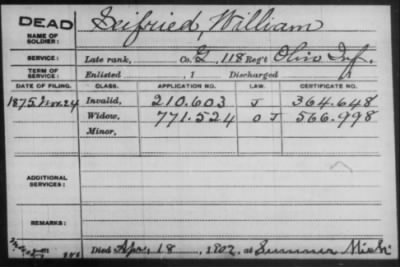 DEAD
NAME OF SOLDIER: Seifried, William
SERVICE: Late rank, Co. G, 118 Reg't Ohio Inf.
TERM OF SERVICE: Enlisted , 1 Discharged
DATE OF FILING. CLASS. APPLICATION NO. LAW. CERTIFICATE NO.
1875 Nov. 24 Invalid, 210.603 J 364.648
Widow, 771.524 O J 566.998
Minor,
ADDITIONAL SERVICES:
REMARKS:
Died Apr. 18, 1902, at Sumner Mich.